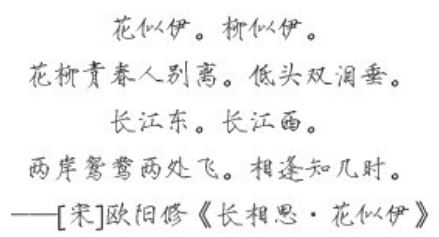 花似伊。柳似伊。
花柳青春人别离。低头双泪垂。
长江东。长江西。
两岸鸳鸯两处飞。相逢知几时。
——[宋]欧阳修《长相思·花似伊》